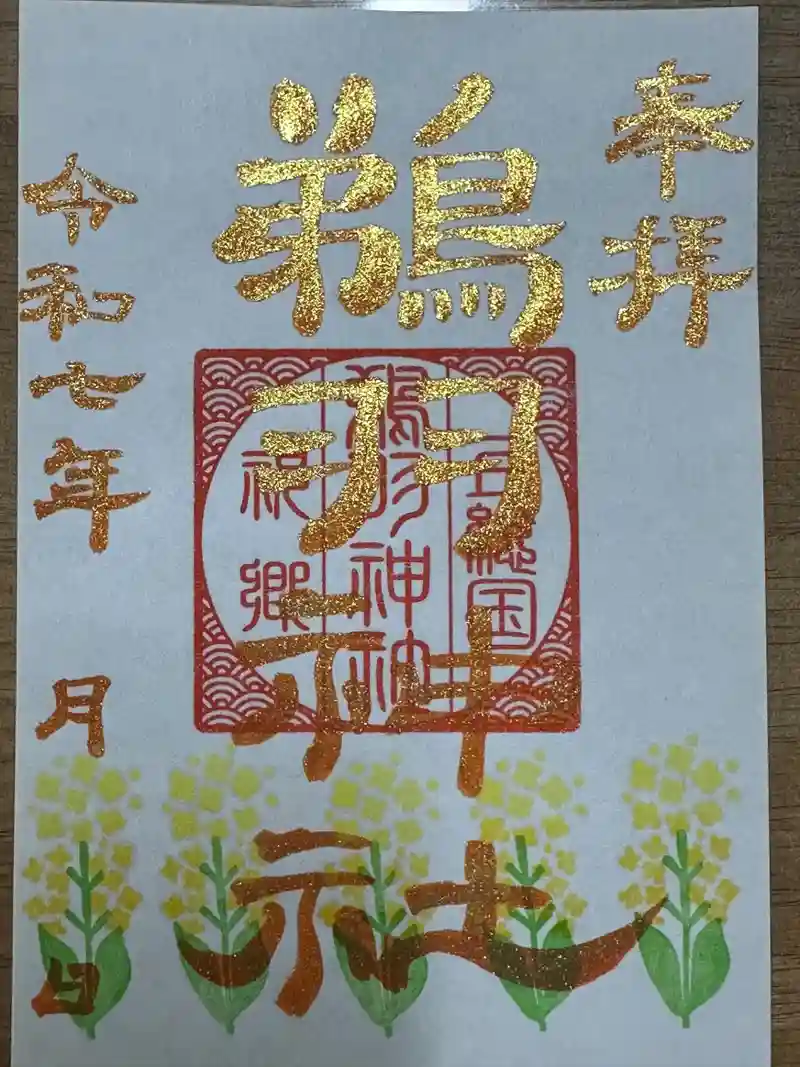 奉拝
鵜羽神社
上総国
鵜羽神社
祝郷
令和七年 月 日